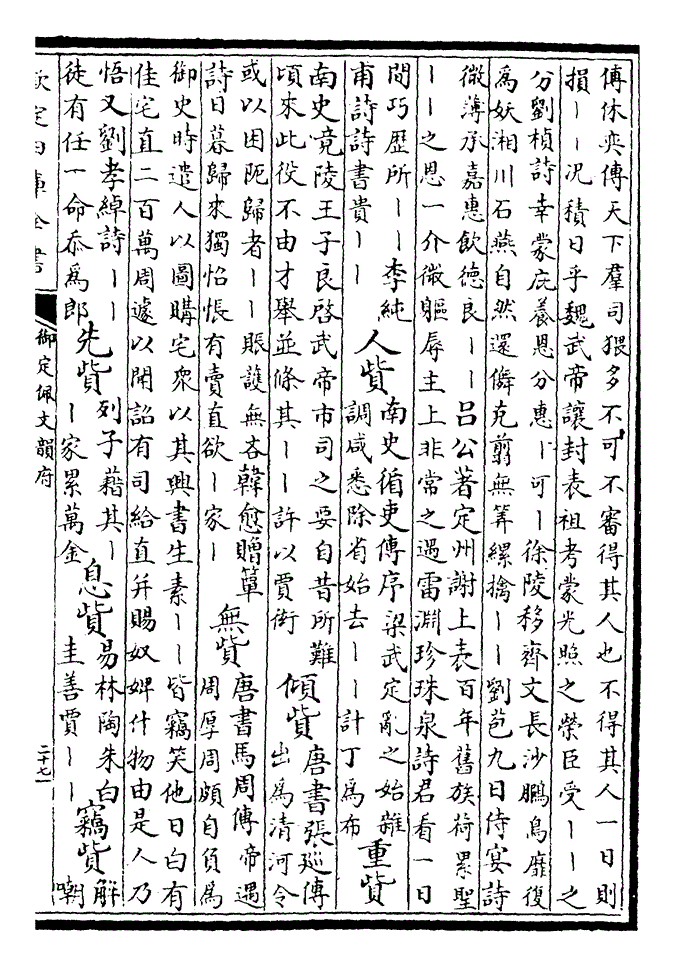 傅休奕傅天下羣司猥多不可不審得其人也不得其人一日則
損丨丨况積日乎魏武帝讓封表祖考蒙光照之榮臣受丨丨之
分劉楨詩幸蒙庇養恩分惠丨可丨徐陵移齊文長沙鵬鳥靡復
為妖湘川石燕自然還儛克剪無筭縲擒丨丨劉苞九日侍宴詩
微薄承嘉惠飲德良丨丨吕公著定州謝上表百年舊族荷累聖
丨丨之恩一介微軀辱主上非常之遇雷淵珍珠泉詩君看一日
間巧歴所丨丨李純
甫詩詩書貴丨丨
人貲
南史循吏傳序梁武定亂之始雜
調咸悉除省始去丨丨計丁為布
重貲
南史竟陵王子良啓武帝市司之要自昔所難
頃來此役不由才舉並條其丨丨許以賈衒
傾貲
唐書張巡傳
出為清河令
或以困阨歸者丨丨賬護無吝韓愈贈簞
詩日暮歸來獨怊悵有賣直欲丨家丨
無貲
唐書馬周傳帝遇
周厚周頗自負為
御史時遣人以圖購宅衆以其興書生素丨丨皆竊笑他日白有
佳宅直二百萬周遽以聞詔有司給直并賜奴婢什物由是人乃
悟又劉孝綽詩丨丨
徒有任一命忝為郎
先貲
列子藉其丨
丨家累萬金
息貲
易林陶朱白
圭善賈丨丨
竊貲
解
嘲
欽定四庫全書
御定佩文韻府
二十七